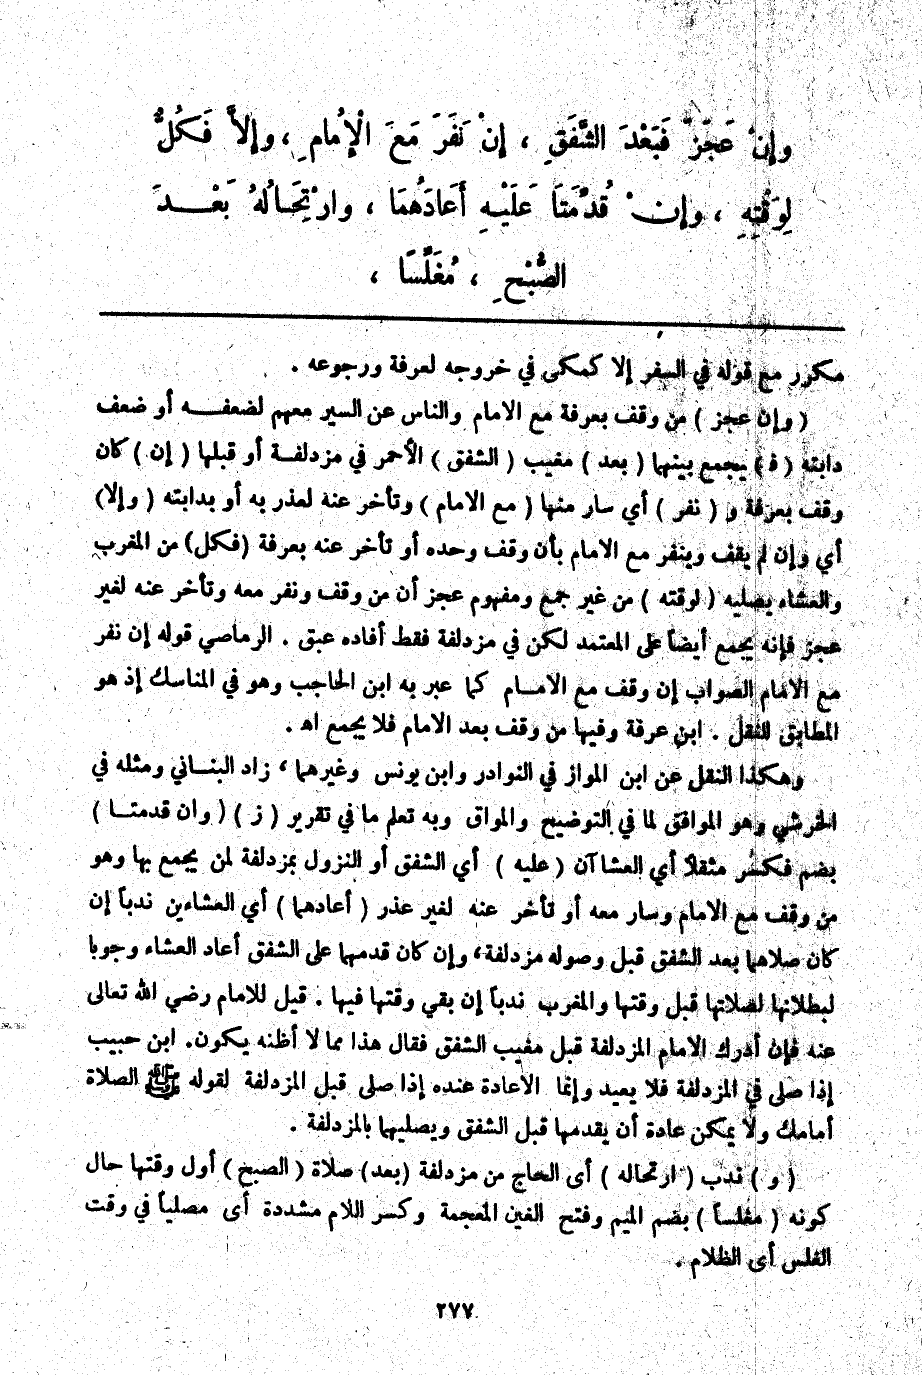 وإنْ عَجَزَ فَبَعْدَ الشَّفَقِ ، إنْ نَفَرَ مَعَ الْإمامِ ، وإلاَّ فَكُلٌّ
لِوَقْتِهِ ، وإنْ قُدِّمَتَا عَلَيْهِ أَعَادَهُمَا ، وارْتِحَالُهُ بَعْدَ
الصُّبْحِ ، مُغَلِّسًا ،
مكرر مع قوله في السفر إلا كمكي في خروجه لعرفة ورجوعه .
( وإن عجز ) من وقف بعرفة مع الامام والناس عن السير معهم لضعفه أو ضعف
دابته ( فـ ) يجمع بينهما ( بعد ) مغيب ( الشفق ) الأحمر في مزدلفة أو قبلها ( إن ) كان
وقف بعرفة و ( نفر ) أي سار منها ( مع الامام ) وتأخر عنه لعذر به أو بدابته ( وإلا )
أي وإن لم يقف وينفر مع الامام بأن وقف وحده أو تأخر عنه بعرفة (فكل) من المغرب
والعشاء يصليه ( لوقته ) من غير جمع ومفهوم عجز أن من وقف ونفر معه وتأخر عنه لغير
عجز فإنه يجمع أيضاً على المعتمد لكن في مزدلفة فقط أفاده عبق . الرماصي قوله إن نفر
مع الامام الصواب إن وقف مع الامام كما عبر به ابن الحاجب وهو في المناسك إذ هو
المطابق للنقل . ابن عرفة وفيها من وقف بعد الامام فلا يجمع اه .
وهكذا النقل عن ابن المواز في النوادر وابن يونس وغيرهما ، زاد البناني ومثله في
الخرشي وهو الموافق لما في التوضيح والمواق وبه تعلم ما في تقرير ( ز ) ( وان قدمتا )
بضم فكسر مثقلاً أي العشاآن ( عليه ) أي الشفق أو النزول بمزدلفة لمن يجمع بها وهو
من وقف مع الامام وسار معه أو تأخر عنه لغير عذر ( أعادهما ) أي العشاءين ندباً إن
كان صلاهما بعد الشفق قبل وصوله مزدلفة، وإن كان قدمهما على الشفق أعاد العشاء وجوبا
لبطلانها لصلاتها قبل وقتها والمغرب ندباً إن بقي وقتها فيها . قيل للامام رضي الله تعالى
عنه فإن أدرك الامام المزدلفة قبل مغيب الشفق فقال هذا مما لا أظنه يكون. ابن حبيب
إذا صلى في المزدلفة فلا يعيد وإنما الاعادة عنده إذا صلى قبل المزدلفة لقوله ﷺ الصلاة
أمامك ولا يمكن عادة أن يقدمها قبل الشفق ويصليها بالمزدلفة .
( و ) ندب ( ارتحاله ) أى الحاج من مزدلفة (بعد) صلاة ( الصبح ) أول وقتها حال
كونه ( مغلساً ) بضم الميم وفتح الغين المعجمة وكسر اللام مشددة أى مصلياً في وقت
الغلس أى الظلام .
٢٧٧